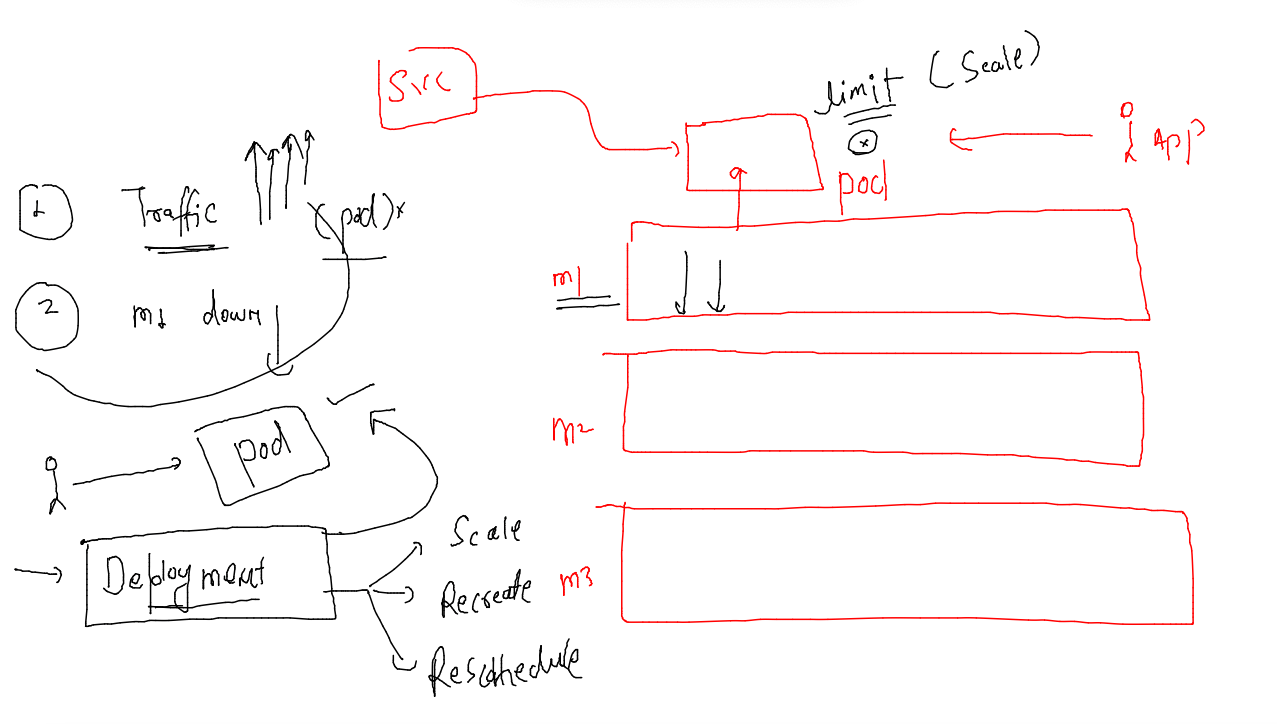 Src
limit (Scale)
pod
App
1 Traffic (pod)x
2 m1 down
pod
Deployment
Scale
Recreate
Reschedule
m1
m2
m3